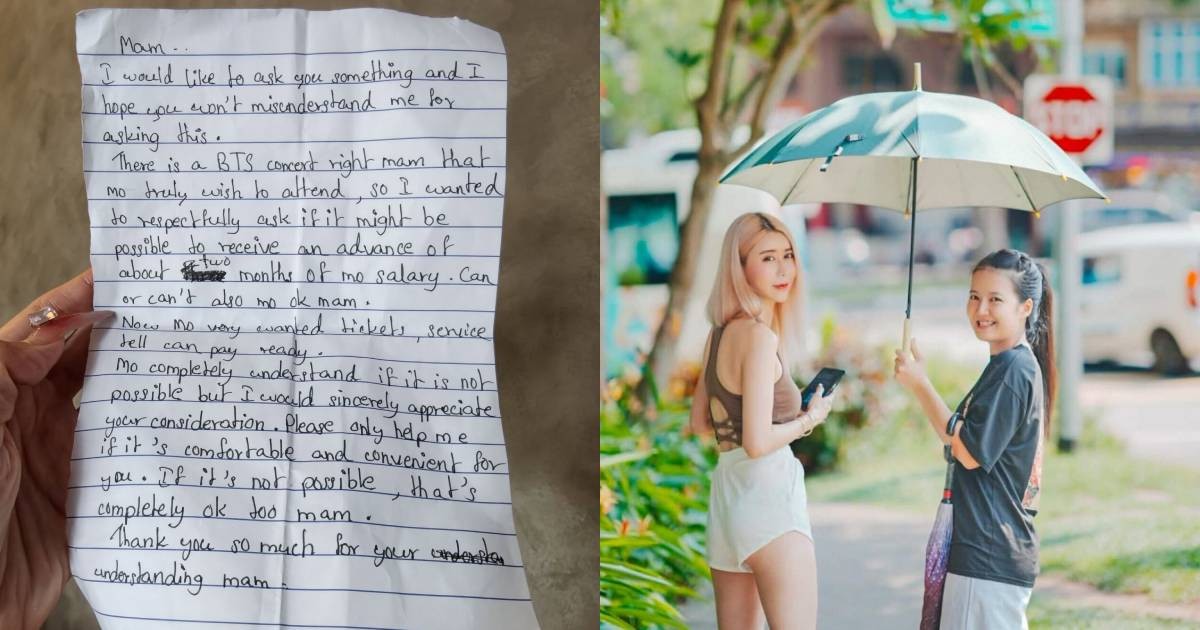 Mam..
I would like to ask you something and I
hope you won't misunderstand me for
asking this.
There is a BTS concert right mam that
mo truly wish to attend, so I wanted
to respectfully ask if it might be
possible to receive an advance of
about two months of mo salary. Can
or can't also mo ok mam.
Now mo very wanted tickets, service
tell can pay ready.
Mo completely understand if it is not
possible but I would sincerely appreciate
your consideration. Please only help me
if it's comfortable and convenient for
you. If it's not possible, that's
completely ok too mam.
Thank you so much for your understan
understanding mam.
STOP